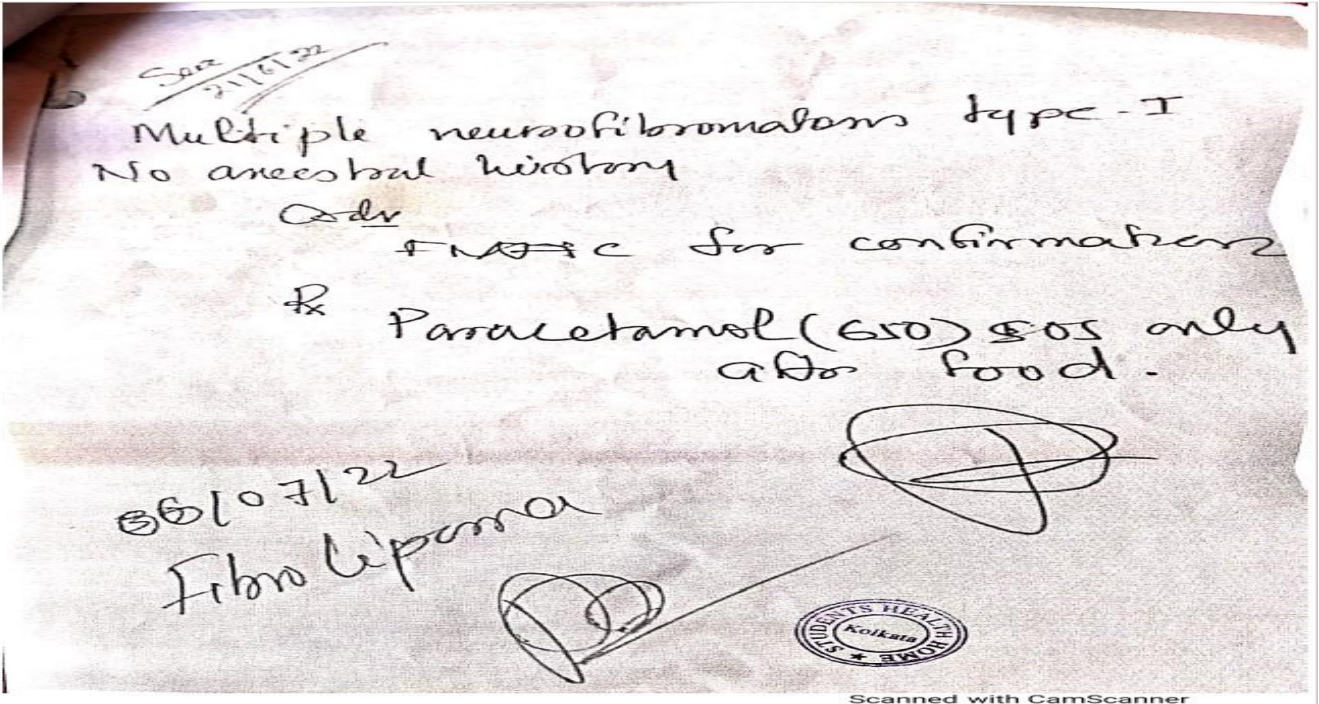 21/6/22
Multiple neurofibromatosis type-I
No ancestral history
Adv
for confirmation
Rx
Paracetamol (650) SOS only
after food.
06/07/22
Fibro lipoma
STUDENTS HEALTH HOME
Kolkata
Scanned with CamScanner